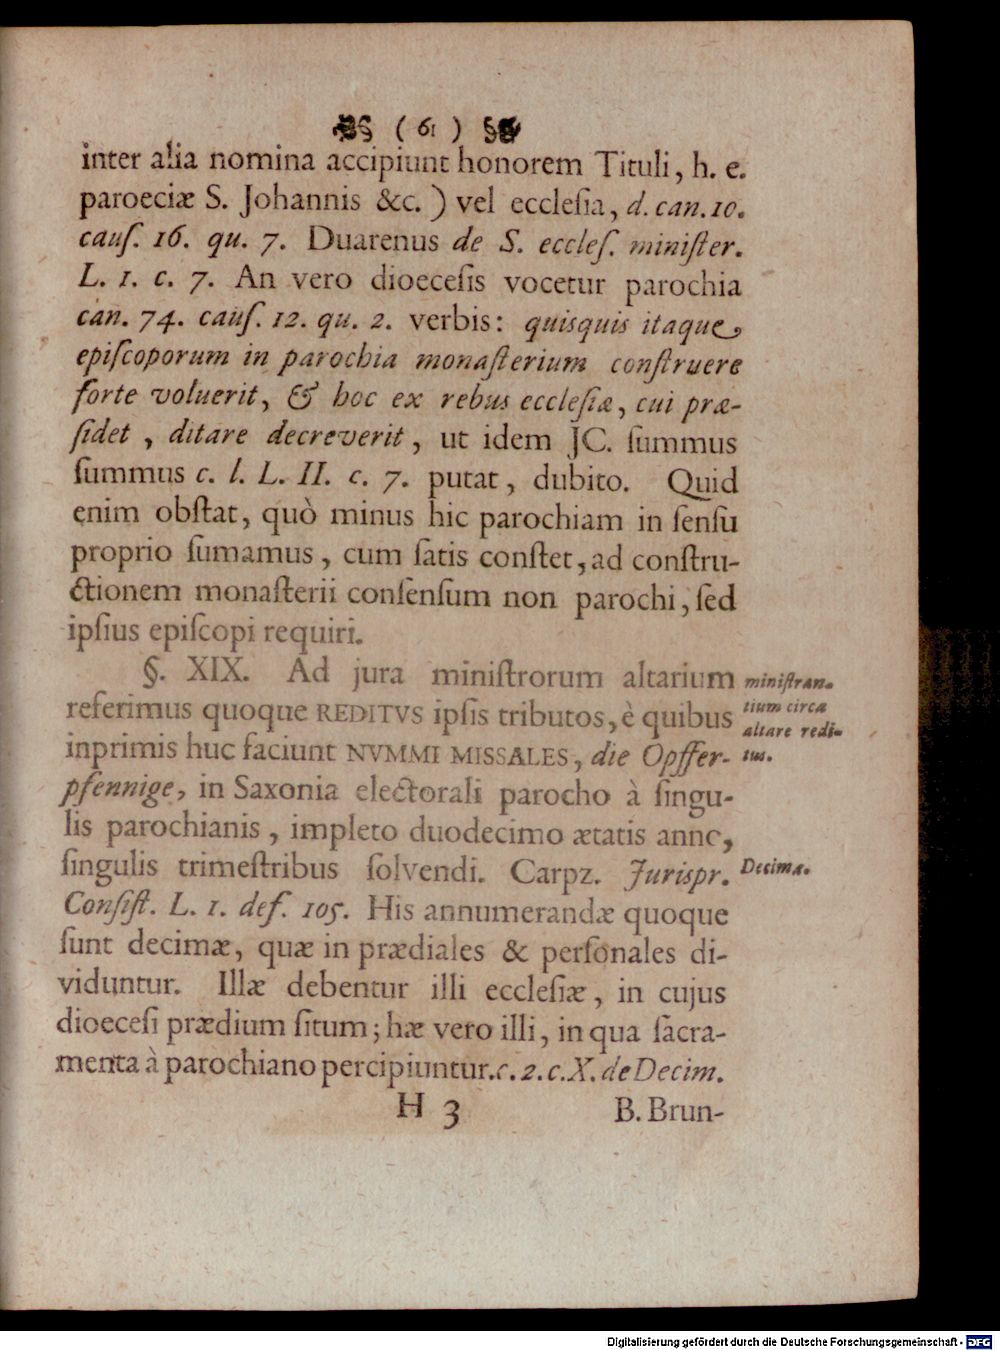 ( 61 )
inter alia nomina accipiunt honorem Tituli, h. e.
paroeciæ S. Johannis &c. ) vel eccleſia, d. can. 10.
cauſ. 16. qu. 7. Duarenus de S. eccleſ. miniſter.
L. 1. c. 7. An vero dioeceſis vocetur parochia
can. 74. cauſ. 12. qu. 2. verbis: quisquis itaque
epiſcoporum in parochia monaſterium conſtruere
forte voluerit, & hoc ex rebus eccleſiæ, cui præ-
ſidet , ditare decreverit, ut idem JC. ſummus
ſummus c. l. L. II. c. 7. putat, dubito. Quid
enim obſtat, quò minus hic parochiam in ſenſu
proprio ſumamus, cum ſatis conſtet, ad conſtru-
ctionem monaſterii conſenſum non parochi, ſed
ipſius epiſcopi requiri.
§. XIX. Ad jura miniſtrorum altarium
referimus quoque REDITVS ipſis tributos, è quibus
inprimis huc faciunt NVMMI MISSALES, die Opffer-
pfennige, in Saxonia electorali parocho à ſingu-
lis parochianis, impleto duodecimo ætatis anno,
ſingulis trimeſtribus ſolvendi. Carpz. Jurispr.
Conſiſt. L. 1. def. 105. His annumerandæ quoque
ſunt decimæ, quæ in prædiales & perſonales di-
viduntur. Illæ debentur illi eccleſiæ, in cujus
dioeceſi prædium ſitum; hæ vero illi, in qua ſacra-
menta à parochiano percipiuntur. c. 2. c. X. de Decim.
H 3
B. Brun-
miniſtran-
tium circa
altare redi-
tus.
Decimæ.
Digitalisierung gefördert durch die Deutsche Forschungsgemeinschaft - DFG